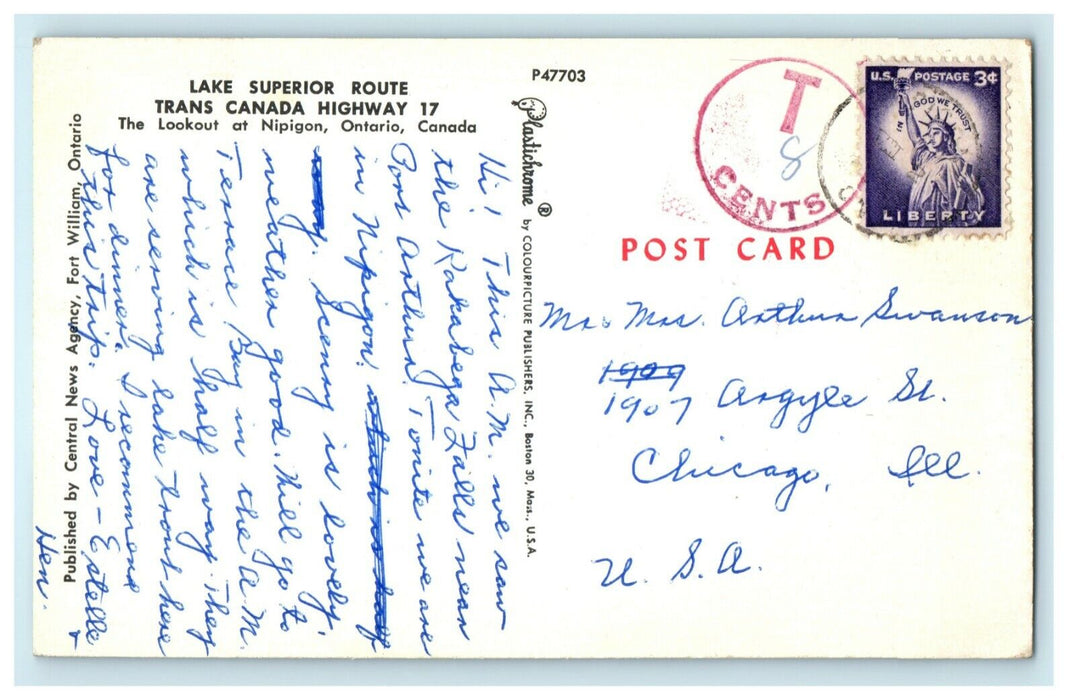 LAKE SUPERIOR ROUTE
TRANS CANADA HIGHWAY 17
The Lookout at Nipigon, Ontario, Canada
P47703
Published by Central News Agency, Fort William, Ontario
Plastichrome ® by COLOURPICTURE PUBLISHERS, INC., Boston 30, Mass., U.S.A.
Hi! This A.M. we saw
the Kakabega Falls near
Port Arthur. Tonite we are
in Nipigon. which is half
way. Scenry is lovely,
weather good. Will go to
Terrace Bay in the A.M.
which is ½ half way. They
are serving lake trout here
for dinner. I recommend
this trip. Love – Estelle +
Hen.
T
8
CENTS
U.S. POSTAGE 3¢
IN GOD WE TRUST
LIBERTY
POST CARD
Mr. Mrs. Arthur Swanson
1909
1907 Argyle St.
Chicago, Ill.
U. S. A.